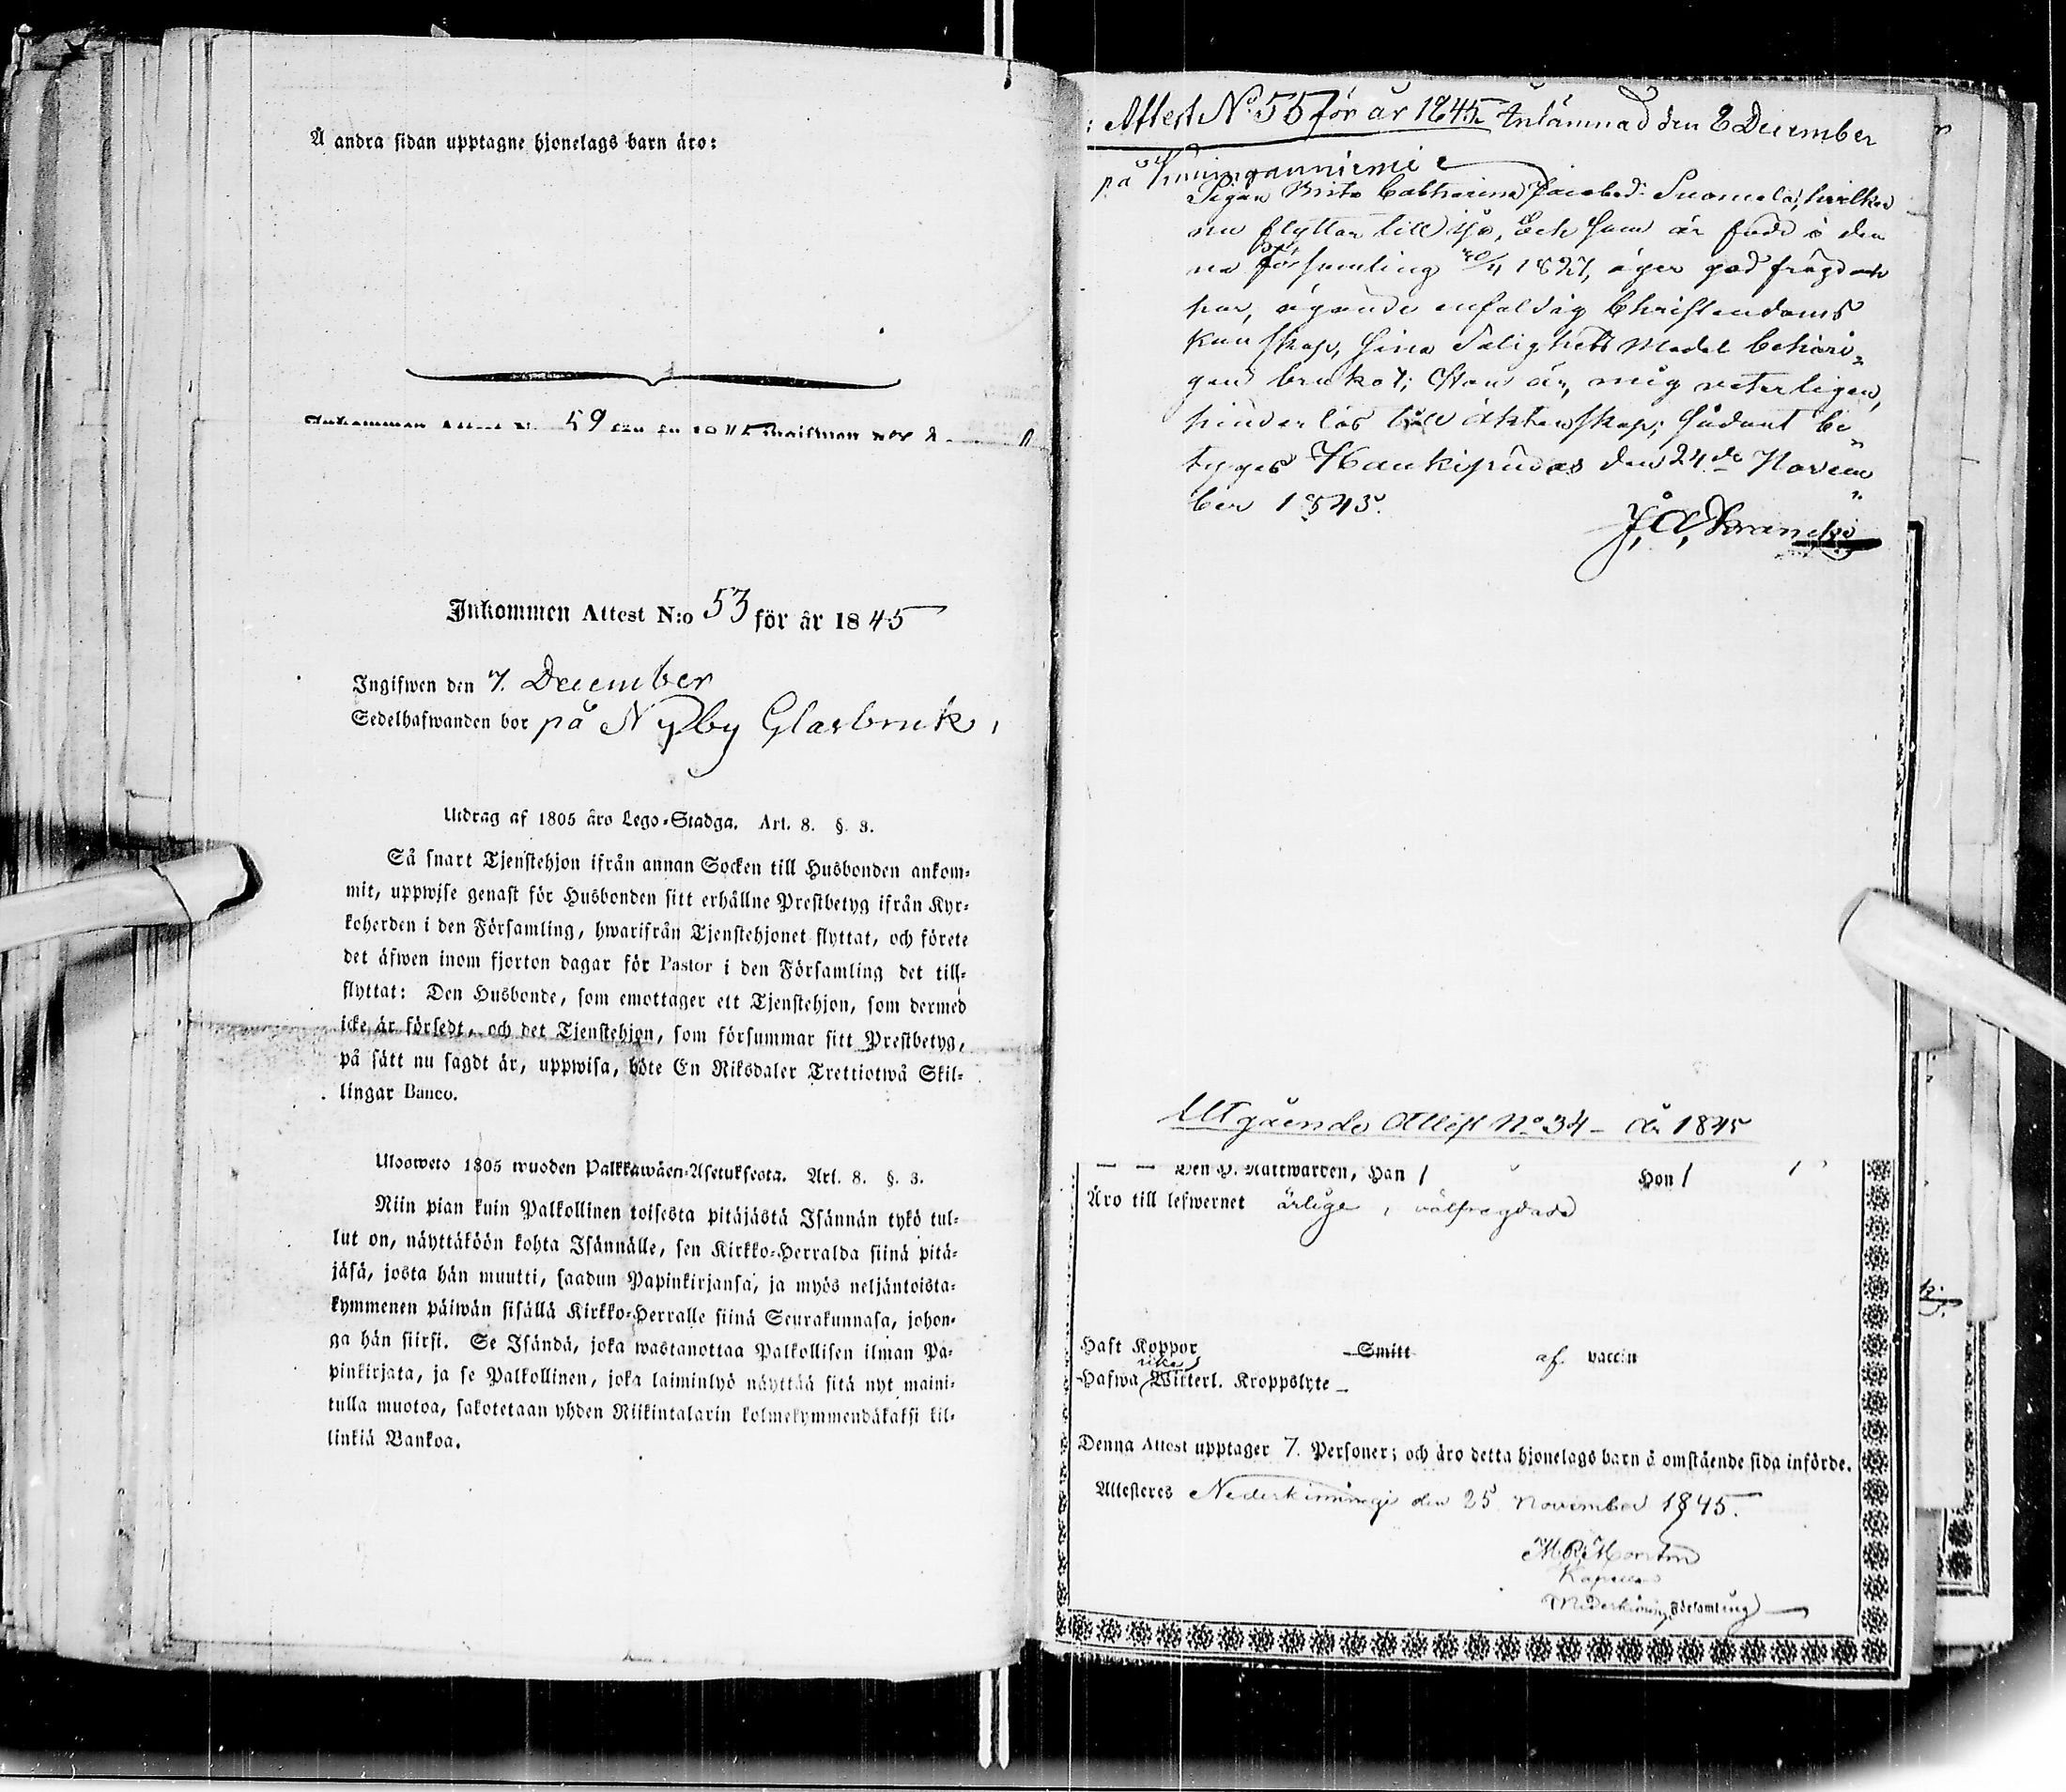 Å andra sidan upptagne hjonelags barn äro:
Inkommen Attest N:o 59
Inkommen Attest N:o 53 för år 1845
Ingifwen den 7. December
Sedelhafwanden bor på Nyby Glasbruk.
Utdrag af 1805 års Lego-Stadga. Art. 8. §. 3.
Så snart Tjenstehjon ifrån annan Socken till Husbonden ankom-
mit, uppwise genast för Husbonden sitt erhållne Prestbetyg ifrån Kyr-
koherden i den Församling, hwarifrån Tjenstehjonet flyttat, och förete
det äfwen inom fjorton dagar för Pastor i den Församling det till-
flyttat: Den Husbonde, som emottager ett Tjenstehjon, som dermed
icke är försedt, och det Tjenstehjon, som försummar sitt Prestbetyg,
på sätt nu sagdt är, uppwisa, böte En Riksdaler Trettiotwå Skil-
lingar Banco.
Ulosweto 1805 wuoden Palkkawäen-Asetuksesta. Art. 8. §. 3.
Niin pian kuin Palkollinen toisesta pitäjästä Isännän tykö tul-
lut on, näyttäköön kohta Isännälle, sen Kirkko-Herralda siinä pitä-
jäsä, josta hän muutti, saadun Papinkirjansa, ja myös neljäntoista-
kymmenen päiwän sisällä Kirkko-Herralle siinä Seurakunnasa, johon-
ga hän siirsi. Se Isändä, joka wastanottaa Palkollisen ilman Pa-
pinkirjata, ja se Palkollinen, joka laiminlyö näyttää sitä nyt maini-
tulla muotoa, sakotetaan yhden Riikintalarin kolmekymmendäkaksi kil-
linkiä Bankoa.
: Attest No 55 för år 1845 Inlämnad den 8 December
på Kuninganniemi
Pigan Brita Catharina Jacobsd: Suomela, hvilken
nu flyttar till Ijo, Och som är född i den
na församling 20/11 1827, äger god frägd och
har, ägande enfaldig Christendoms
kunskap, sina Salighets Medel behöri„
gen brukat; Hon är, mig veterligen,
hinderlös till äktenskap; sådant be„
tygas Haukipudas den 24de Novem„
ber 1845.
J. A. Krancke
Utgående Attest No 34 – År 1845
Den H. Nattwarden, Han / Hon /
Äro till lefwernet ärlige, välfregdade
Haft Koppor Smitt af vaccin
Hafwa icke Witterl. Kroppslyte –
Denna Attest upptager 7. Personer; och äro detta hjonelags barn å omstående sida införde.
Attesteres Nederkiminge den 25 November 1845.
Kapellan
Nederkiminge Församling